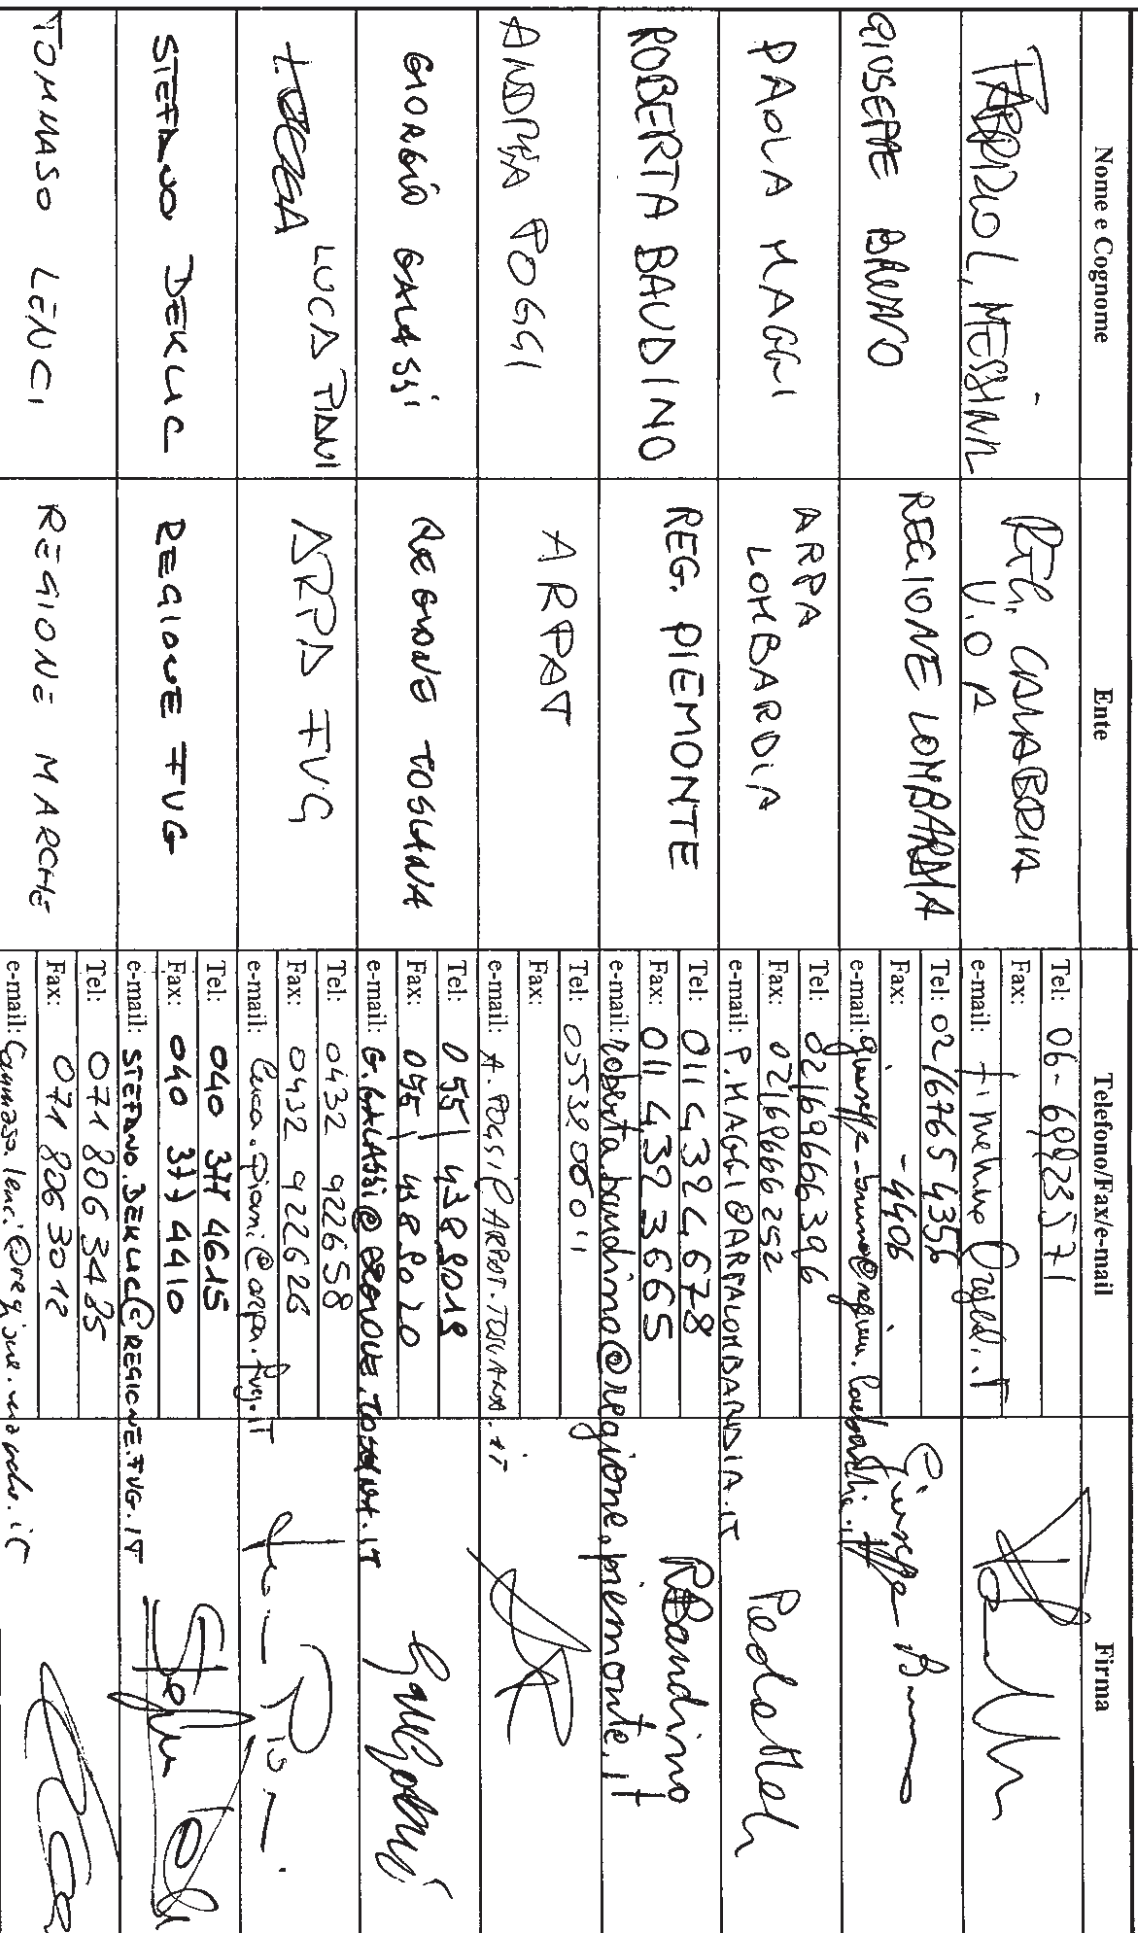 Nome e Cognome Ente Telefono/Fax/e-mail Firma
FABRIZIO L. MESSINA
REG. CALABRIA
U.O.A
Tel: 06-6992357 1
Fax:
e-mail:
GIUSEPPE BRUNO
REGIONE LOMBARDIA
Tel: 02/6765 4356
Fax: - 4406
e-mail: giuseppe_bruno@regione.lombardia.it
Giuseppe Bruno
PAOLA MAGGI
ARPA
LOMBARDIA
Tel: 02/69666396
Fax: 02/69666252
e-mail: P.MAGGI@ARPALOMBARDIA.IT
ROBERTA BAUDINO
REG. PIEMONTE
Tel: 011 432 4678
Fax: 011 432 3665
e-mail: roberta.baudino@regione.piemonte.it
RBaudino
ANDREA POGGI
ARPAT
Tel: 055320601
Fax:
e-mail: A.POGGI@ARPAT.TOSCANA.IT
GIORGIO GALASSI
REGIONE TOSCANA
Tel: 055/438 9019
Fax: 055/438 9020
e-mail: G.GALASSI@REGIONE.TOSCANA.IT
LUCA PIANI
ARPA FVG
Tel: 0432 922658
Fax: 0432 922626
e-mail: luca.piani@arpa.fvg.it
STEFANO DEKLIC
REGIONE FVG
Tel: 040 377 4615
Fax: 040 377 4410
e-mail: STEFANO.DEKLIC@REGIONE.FVG.IT
TOMMASO LENCI
REGIONE MARCHE
Tel: 071 806 3485
Fax: 071 806 3012
e-mail: tommaso.lenci@regione.marche.it